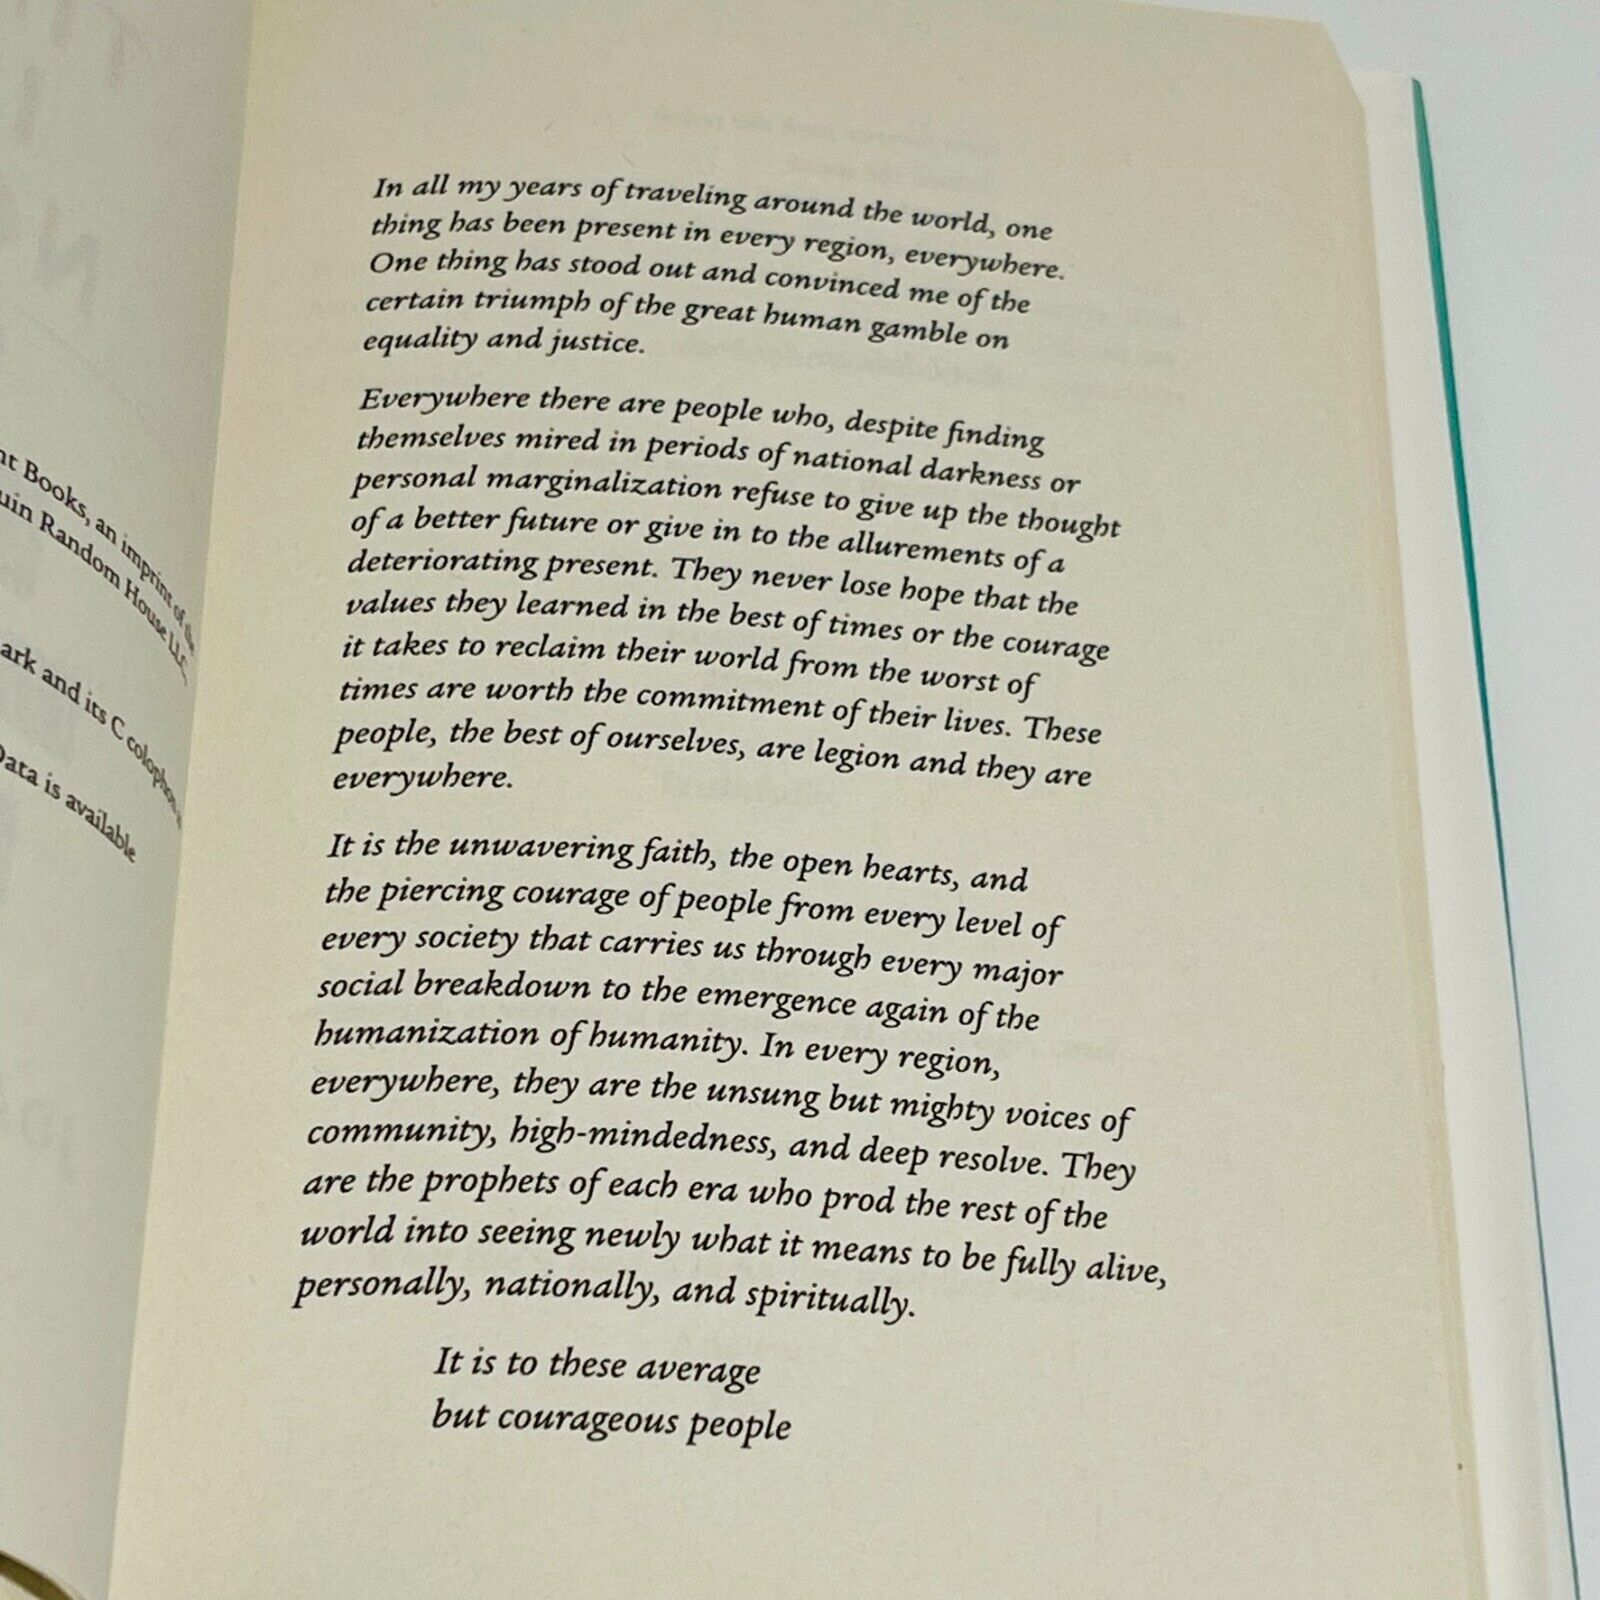 nt Books, an imprint of the
uin Random House LLC
ark and its C colophon
Data is available
In all my years of traveling around the world, one
thing has been present in every region, everywhere.
One thing has stood out and convinced me of the
certain triumph of the great human gamble on
equality and justice.
Everywhere there are people who, despite finding
themselves mired in periods of national darkness or
personal marginalization refuse to give up the thought
of a better future or give in to the allurements of a
deteriorating present. They never lose hope that the
values they learned in the best of times or the courage
it takes to reclaim their world from the worst of
times are worth the commitment of their lives. These
people, the best of ourselves, are legion and they are
everywhere.
It is the unwavering faith, the open hearts, and
the piercing courage of people from every level of
every society that carries us through every major
social breakdown to the emergence again of the
humanization of humanity. In every region,
everywhere, they are the unsung but mighty voices of
community, high-mindedness, and deep resolve. They
are the prophets of each era who prod the rest of the
world into seeing newly what it means to be fully alive,
personally, nationally, and spiritually.
It is to these average
but courageous people